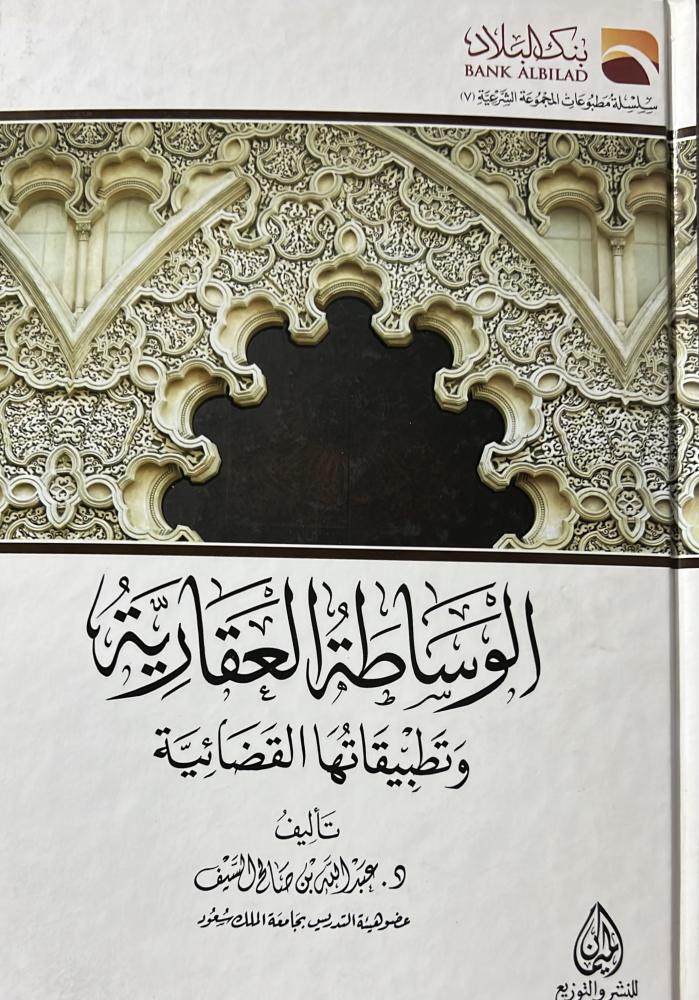 بنك البلاد
BANK ALBILAD
سلسلة مطبوعات المجموعة الشرعية (٧)
الوَسَاطَةُ العَقَارِيَّةُ
وَتَطْبِيقَاتُهَا القَضَائِيَّة
تَأليفُ
د. عبد الله بن صالح السيف
عضو هيئة التدريس بجامعة الملك سعود
الميمان
للنشر والتوزيع